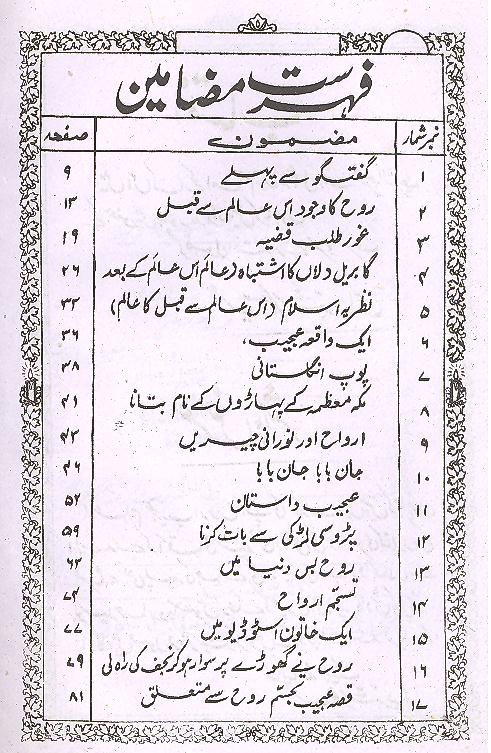 ۵
فہرست مضامین
نمبر شمار مضمون صفحہ
۱ گفتگو سے پہلے ۹
۲ روح کا وجود اس عالم سے قبل ۱۳
۳ غور طلب قضیہ ۱۹
۴ گابریل دلاں کا اشتباہ (عالَم اس عالَم کے بعد ۲۶
۵ نظریہ اسلام (اس عالم سے قبل کا عالم) ۳۲
۶ ایک واقعہ عجیب، ۳۶
۷ پوپ انگلستانی ۳۸
۸ مکہ معظمہ کے پہاڑوں کے نام بتانا ۴۱
۹ ارواح اور نورانی چیزیں ۴۳
۱۰ جان بابا جان بابا ۴۶
۱۱ عجیب داستان ۵۲
۱۲ پڑوسی لڑکی سے بات کرنا ۵۹
۱۳ روح بس دنیا میں ۶۲
۱۴ تجسم ارواح ۷۴
۱۵ ایک خاتون اسٹوڈیو میں ۷۷
۱۶ روح نے گھوڑے پر سوار ہو کر نجف کی راہ لی ۷۹
۱۷ قصہ عجیب تجسم روح سے متعلق ۸۱